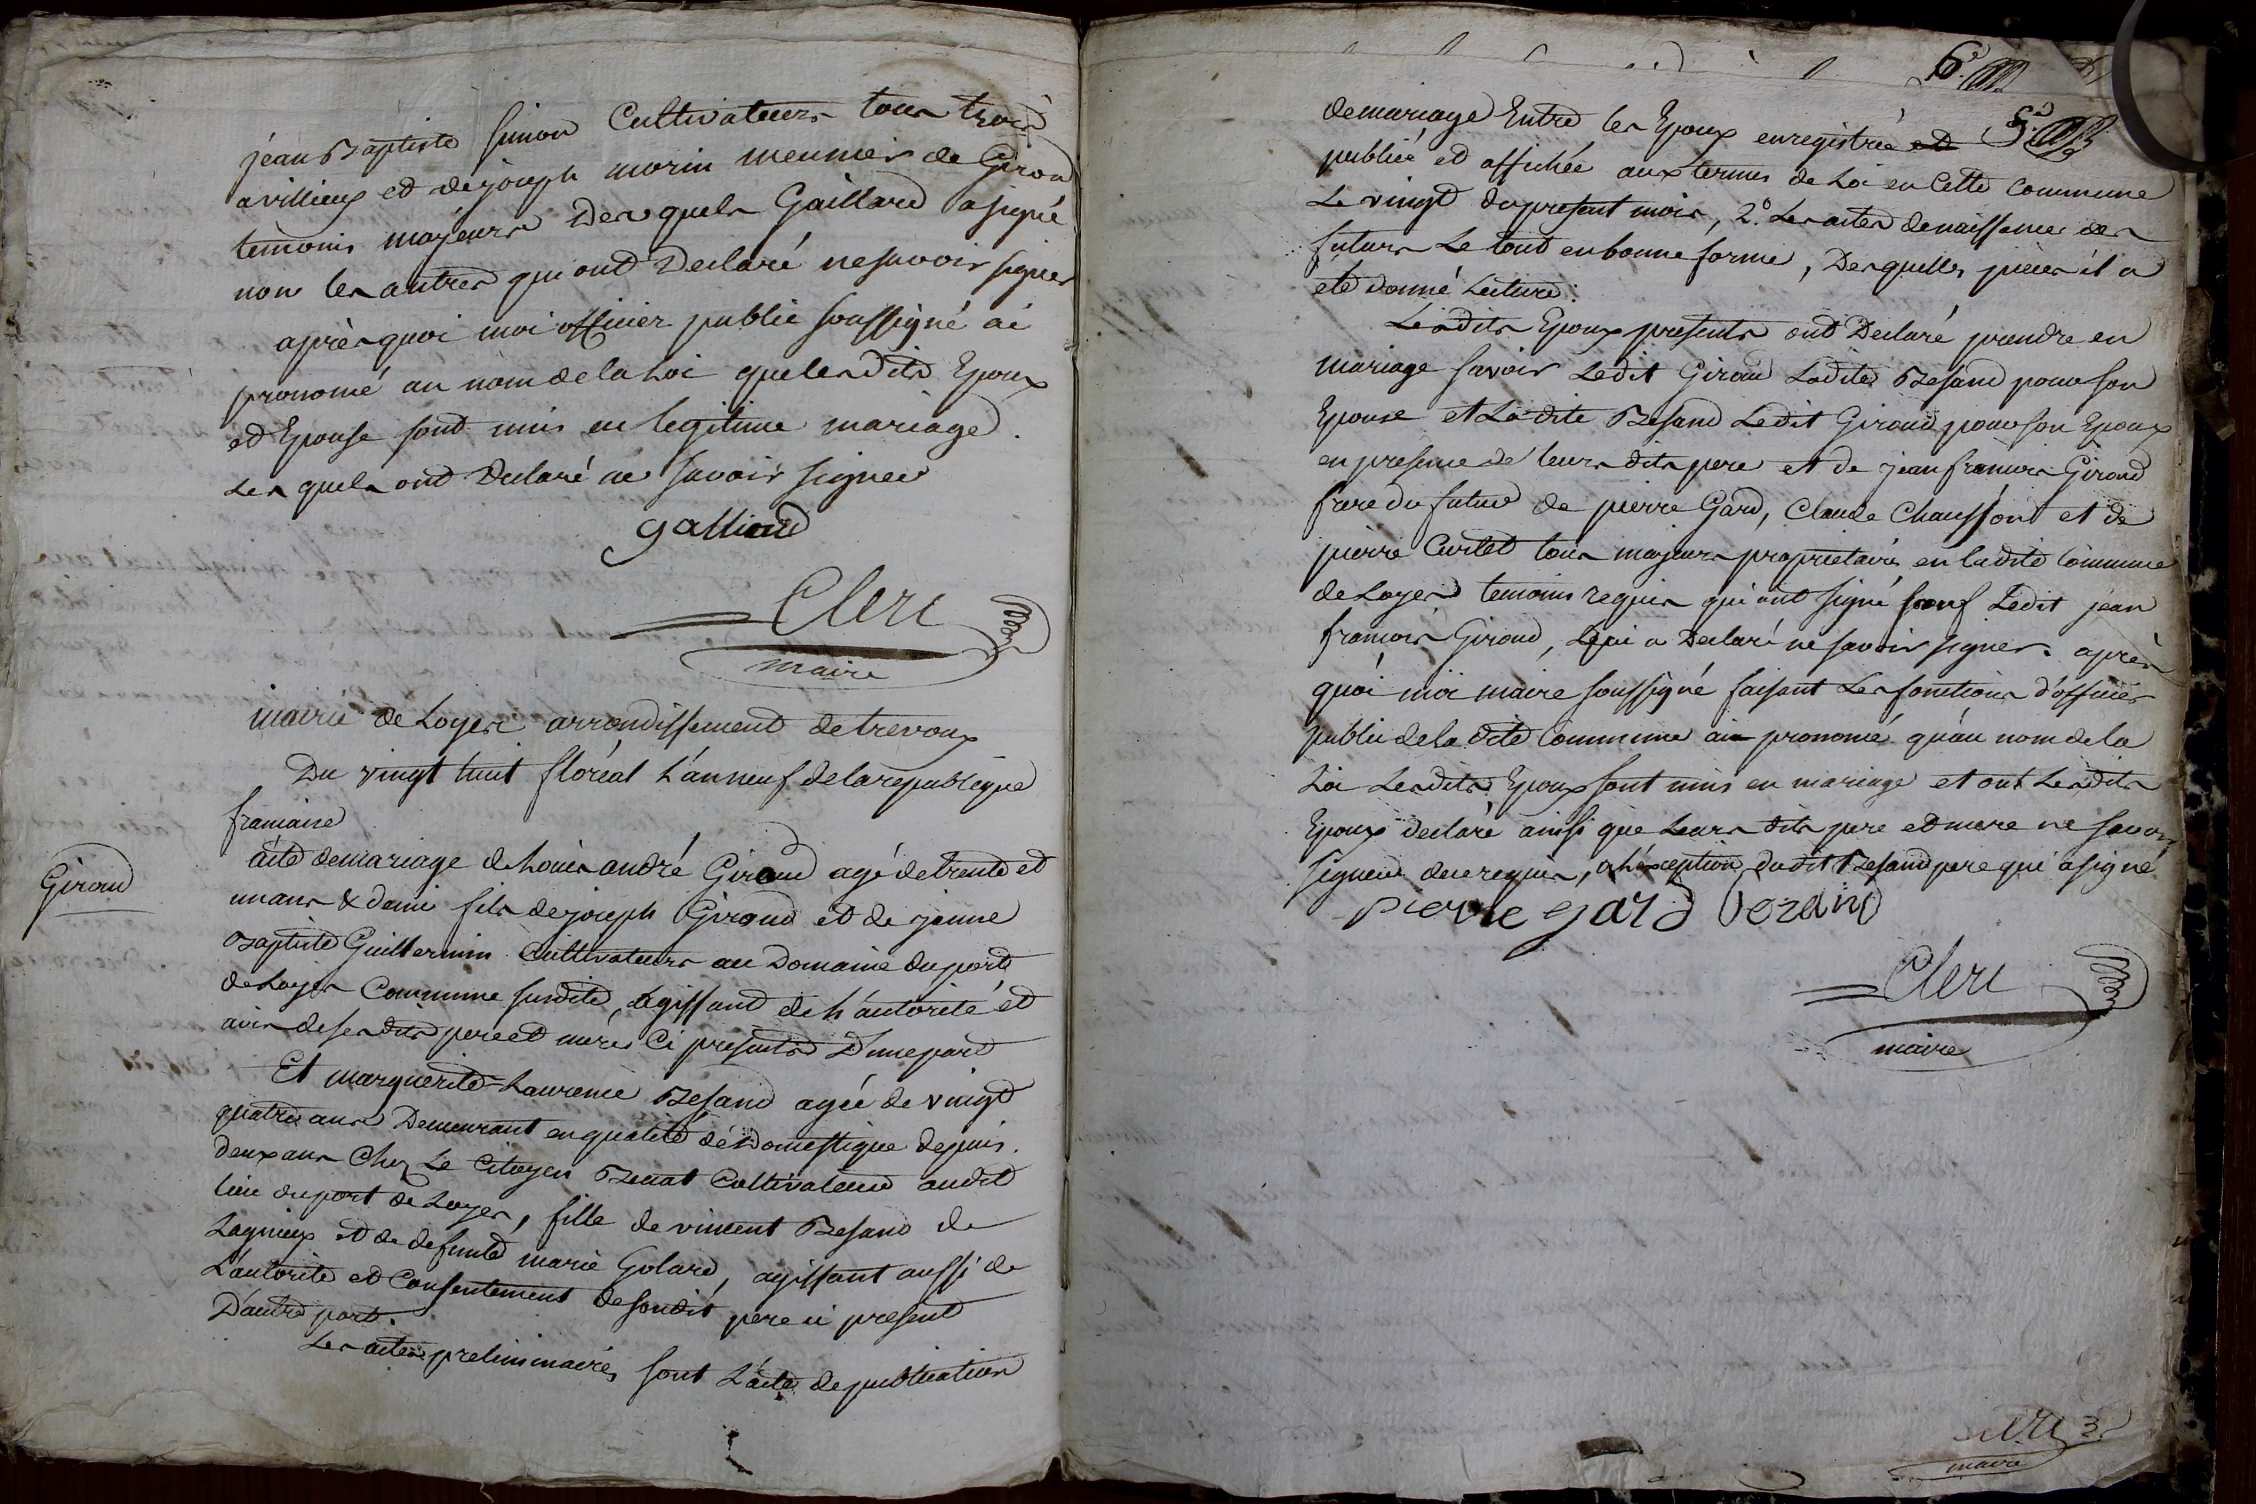 jean Baptiste simon Cultivateurs tous trois
a villieux et de joseph morin meunier de Giron
temoins majeurs Des quels Gaillard a signé
non les autres qui ont Declaré ne savoir signer
après quoi moi officier public soussigné ai
pronomé au nom de la Loi que lesdits Epoux
et Epouse sont unis en legitime mariage.
Les quels ont Declaré ne savoir signer
galliard
Clerc
maire
mairie de Loyes arrondissement de trevoux
Du vingt huit floréal L'an neuf de la republique
francaise
Giroud
acte de mariage de Louis andré Giroud agé de trente et
un ans & demi fils de joseph Giroud et de jeanne
Baptiste Guillermin Cultivateurs au Domaine du port
de Loyes Commune susdite, agissant de L'autorité et
avis de ses dits pere et mere Ci presents D'une part
Et marguerite Laurence Besand agée de vingt
quatre ans Demeurant en qualité de Domestique depuis
deux ans Chez Le Citoyen Benat Cultivateur audit
lieu du port de Loyes, fille de vincent Besand de
Lagnieux et de defunte marie Golard, agissant aussi de
L'autorité et Consentement de sondit pere ci present
D'autre part.
Les actes preliminaires sont L'acte de publication
6e
5e
de mariage Entre les Epoux enregistrée et
publiée et affichée aux termes de Loi en Cette Commune
Le vingt du present mois, 2.° Les actes de naissance des
futurs Le tout en bonne forme, Desquelles pieces il a
eté donné Lecture.
Lesdits Epoux presents ont Declaré prendre en
mariage savoir Ledit Giroud Ladite Besand pour son
Epouse et Ladite Besand Ledit Giroud pour son Epoux
en presence de leurs dits pere et de jean francois Giroud
frere du futur de pierre Gard, Claude Chausson et de
pierre Curtet tous majeurs proprietaires en ladite Commune
de Loyes temoins requis qui ont signé sauf Ledit jean
francois Giroud, qui a Declaré ne savoir signer. après
quoi moi maire soussigné faisant Les fonctions d'officier
public de la dite Commune ai pronomé qu'au nom de la
Loi Lesdits Epoux sont unis en mariage et ont Lesdits
Epoux declaré ainsi que Leurs dits pere et mere ne savoir
signer de ce requis, a L'exception dudit Besand pere qui a signé
pierre gard bezand
Clerc
maire
Clerc
maire